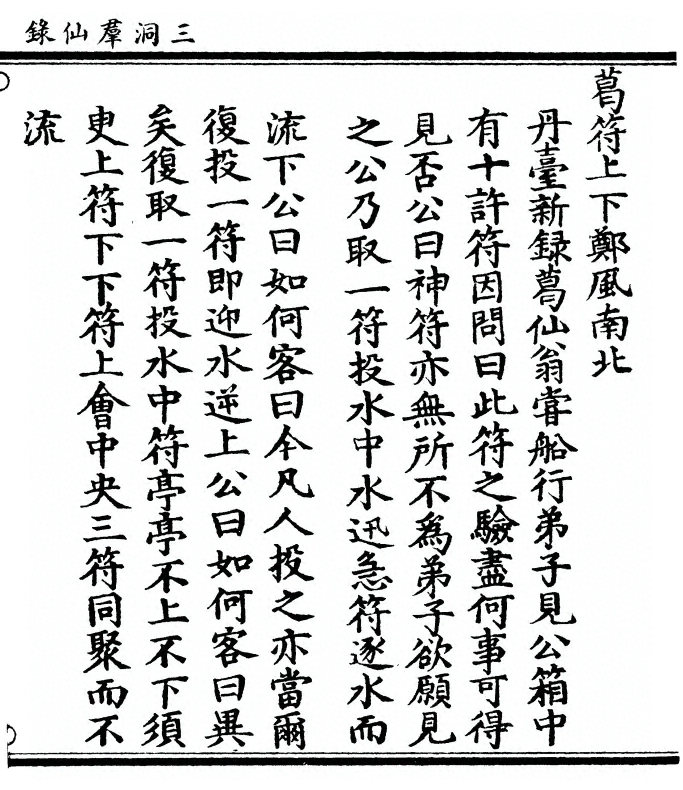 三洞羣仙錄
葛符上下鄭風南北
丹臺新録葛仙翁嘗船行弟子見公箱中
有十許符因問曰此符之驗盡何事可得
見否公曰神符亦無所不為弟子欲願見
之公乃取一符投水中水迅急符逐水而
流下公曰如何客曰今凡人投之亦當爾
復投一符即迎水逆上公曰如何客曰異
矣復取一符投水中符亭亭不上不下須
臾上符下下符上會中央三符同聚而不
流